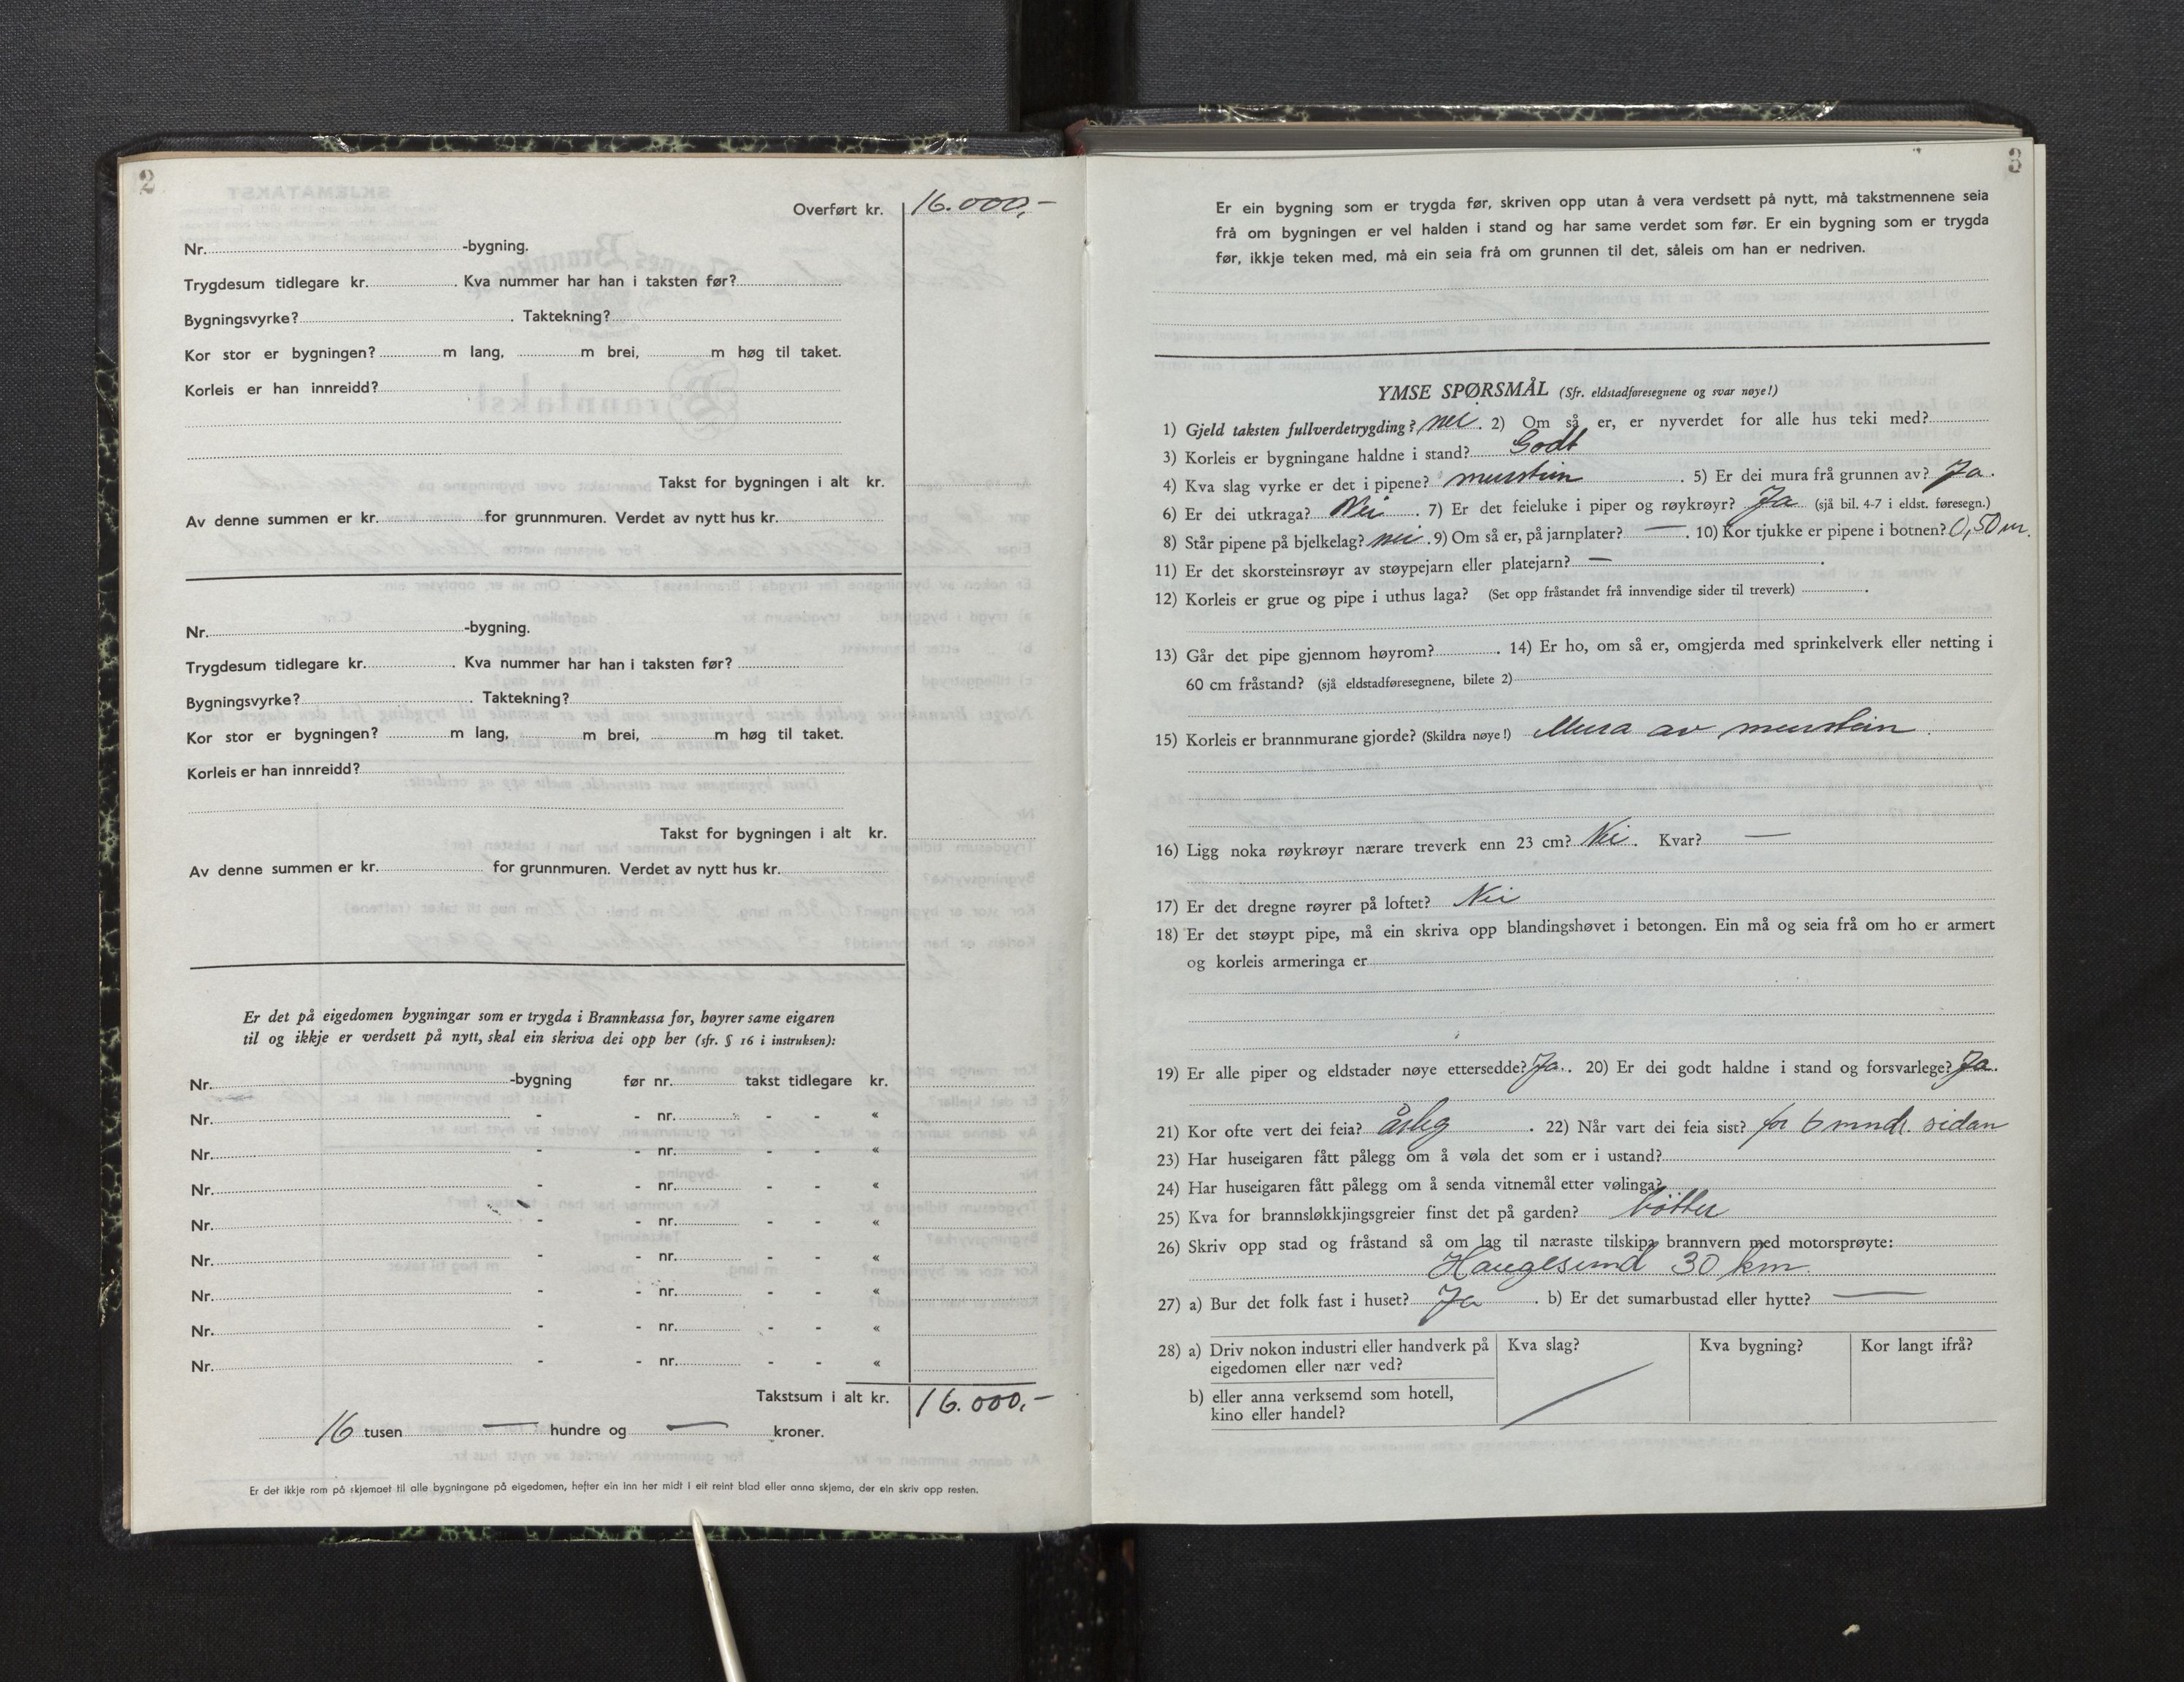 2
Overført kr. 16.000,-
Nr. -bygning.
Trygdesum tidlegare kr. . Kva nummer har han i taksten før?
Bygningsvyrke? . Taktekning?
Kor stor er bygningen? m lang, m brei, m høg til taket.
Korleis er han innreidd?
Takst for bygningen i alt kr.
Av denne summen er kr. for grunnmuren. Verdet av nytt hus kr.
Nr. -bygning.
Trygdesum tidlegare kr. . Kva nummer har han i taksten før?
Bygningsvyrke? . Taktekning?
Kor stor er bygningen? m lang, m brei, m høg til taket.
Korleis er han innreidd?
Takst for bygningen i alt kr.
Av denne summen er kr. for grunnmuren. Verdet av nytt hus kr.
Er det på eigedomen bygningar som er trygda i Brannkassa før, høyrer same eigaren
til og ikkje er verdsett på nytt, skal ein skriva dei opp her (sfr. § 16 i instruksen):
Nr. -bygning før nr. takst tidlegare kr.
Nr. - - nr. - - «
Nr. - - nr. - - «
Nr. - - nr. - - «
Nr. - - nr. - - «
Nr. - - nr. - - «
Nr. - - nr. - - «
Nr. - - nr. - - «
Nr. - - nr. - - «
Takstsum i alt kr. 16.000,-
16 tusen — hundre og — kroner.
Er det ikkje rom på skjemaet til alle bygningane på eigedomen, hefter ein inn her midt i eit reint blad eller anna skjema, der ein skriv opp resten.
3
Er ein bygning som er trygda før, skriven opp utan å vera verdsett på nytt, må takstmennene seia
frå om bygningen er vel halden i stand og har same verdet som før. Er ein bygning som er trygda
før, ikkje teken med, må ein seia frå om grunnen til det, såleis om han er nedriven.
YMSE SPØRSMÅL (Sfr. eldstadføresegnene og svar nøye!)
1) Gjeld taksten fullverdetrygding? nei . 2) Om så er, er nyverdet for alle hus teki med?
3) Korleis er bygningane haldne i stand? Godt
4) Kva slag vyrke er det i pipene? murstein . 5) Er dei mura frå grunnen av? Ja.
6) Er dei utkraga? Nei . 7) Er det feieluke i piper og røykrøyr? Ja (sjå bil. 4-7 i eldst. føresegn.)
8) Står pipene på bjelkelag? nei . 9) Om så er, på jarnplater? — . 10) Kor tjukke er pipene i botnen? 0,50 m.
11) Er det skorsteinsrøyr av støypejarn eller platejarn? — .
12) Korleis er grue og pipe i uthus laga? (Set opp fråstandet frå innvendige sider til treverk) .
13) Går det pipe gjennom høyrom? . 14) Er ho, om så er, omgjerda med sprinkelverk eller netting i
60 cm fråstand? (sjå eldstadføresegnene, bilete 2)
15) Korleis er brannmurane gjorde? (Skildra nøye!) Mura av murstein .
16) Ligg noka røykrøyr nærare treverk enn 23 cm? Nei . Kvar? —
17) Er det dregne røyrer på loftet? Nei
18) Er det støypt pipe, må ein skriva opp blandingshøvet i betongen. Ein må og seia frå om ho er armert
og korleis armeringa er
19) Er alle piper og eldstader nøye ettersedde? Ja. . 20) Er dei godt haldne i stand og forsvarlege? Ja.
21) Kor ofte vert dei feia? årleg . 22) Når vart dei feia sist? for 6 mndr. sidan
23) Har huseigaren fått pålegg om å vøla det som er i ustand?
24) Har huseigaren fått pålegg om å senda vitnemål etter vølinga?
25) Kva for brannsløkkjingsgreier finst det på garden? bötter
26) Skriv opp stad og fråstand så om lag til næraste tilskipa brannvern med motorsprøyte:
Haugesund 30 km.
27) a) Bur det folk fast i huset? Ja . b) Er det sumarbustad eller hytte? —
28) a) Driv nokon industri eller handverk på Kva slag? Kva bygning? Kor langt ifrå?
eigedomen eller nær ved?
b) eller anna verksemd som hotell,
kino eller handel?